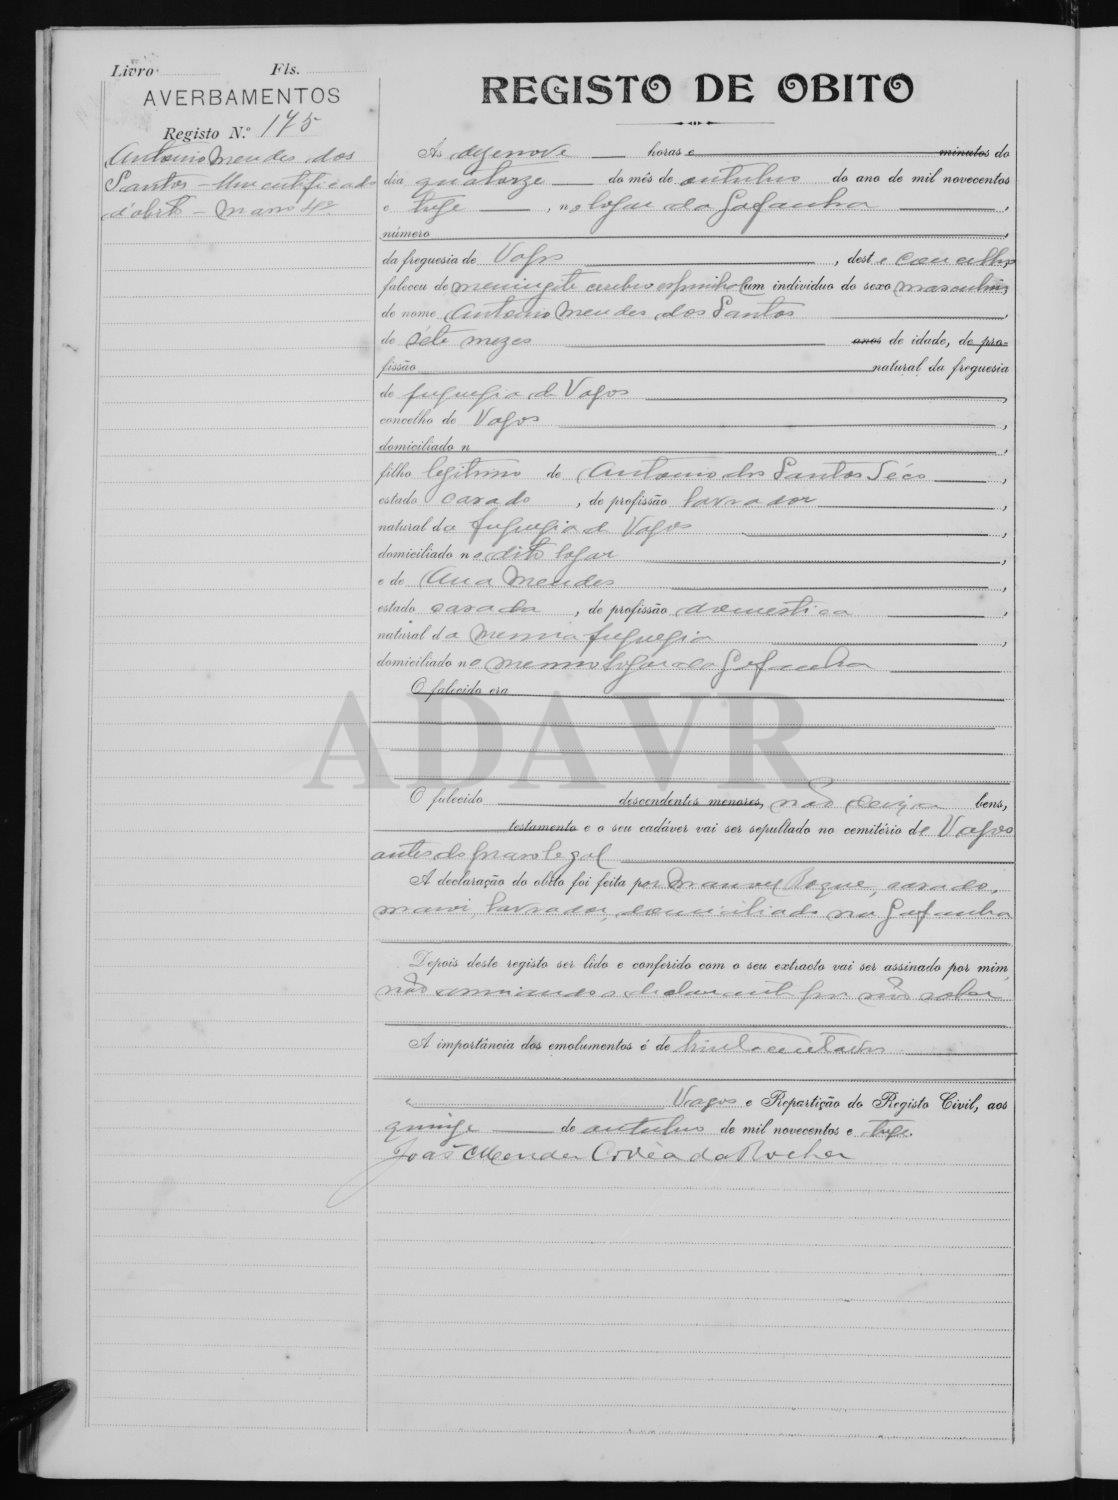 Livro Fls.
AVERBAMENTOS
Registo N.º 175
Antonio Mendes dos
Santos – Um certificado
d'obito – maço 4º
REGISTO DE OBITO
Ás dezenove horas e minutos do
dia quatorze do mês de outubro do ano de mil novecentos
e treze, no logar da Gafanha,
número,
da freguesia de Vagos, deste concelho
faleceu de meningite cerebro espinhal um individuo do sexo masculino,
de nome Antonio Mendes dos Santos,
de séte mezes anos de idade, de pro-
fissão natural da freguesia
de freguezia de Vagos,
concelho de Vagos,
domiciliado n,
filho legitimo de Antonio dos Santos Séco,
estado casado, de profissão lavrador,
natural da freguezia de Vagos,
domiciliado no dito logar,
e de Ana Mendes,
estado casada, de profissão domestica,
natural da mesma freguezia,
domiciliado no mesmo logar da Gafanha
O falecido era
O falecido descendentes menores, não deixa bens,
testamento e o seu cadáver vai ser sepultado no cemitério de Vagos
antes do praso legal
A declaração do obito foi feita por Manuel Roque, casado,
maior, lavrador, domiciliado na Gafanha
Depois deste registo ser lido e conferido com o seu extracto vai ser assinado por mim,
não assinando o declarante por não saber
A importância dos emolumentos é de trinta centavos
Vagos e Repartição do Registo Civil, aos
quinze de outubro de mil novecentos e treze.
João Mendes Corrêa da Rocha
ADAVR